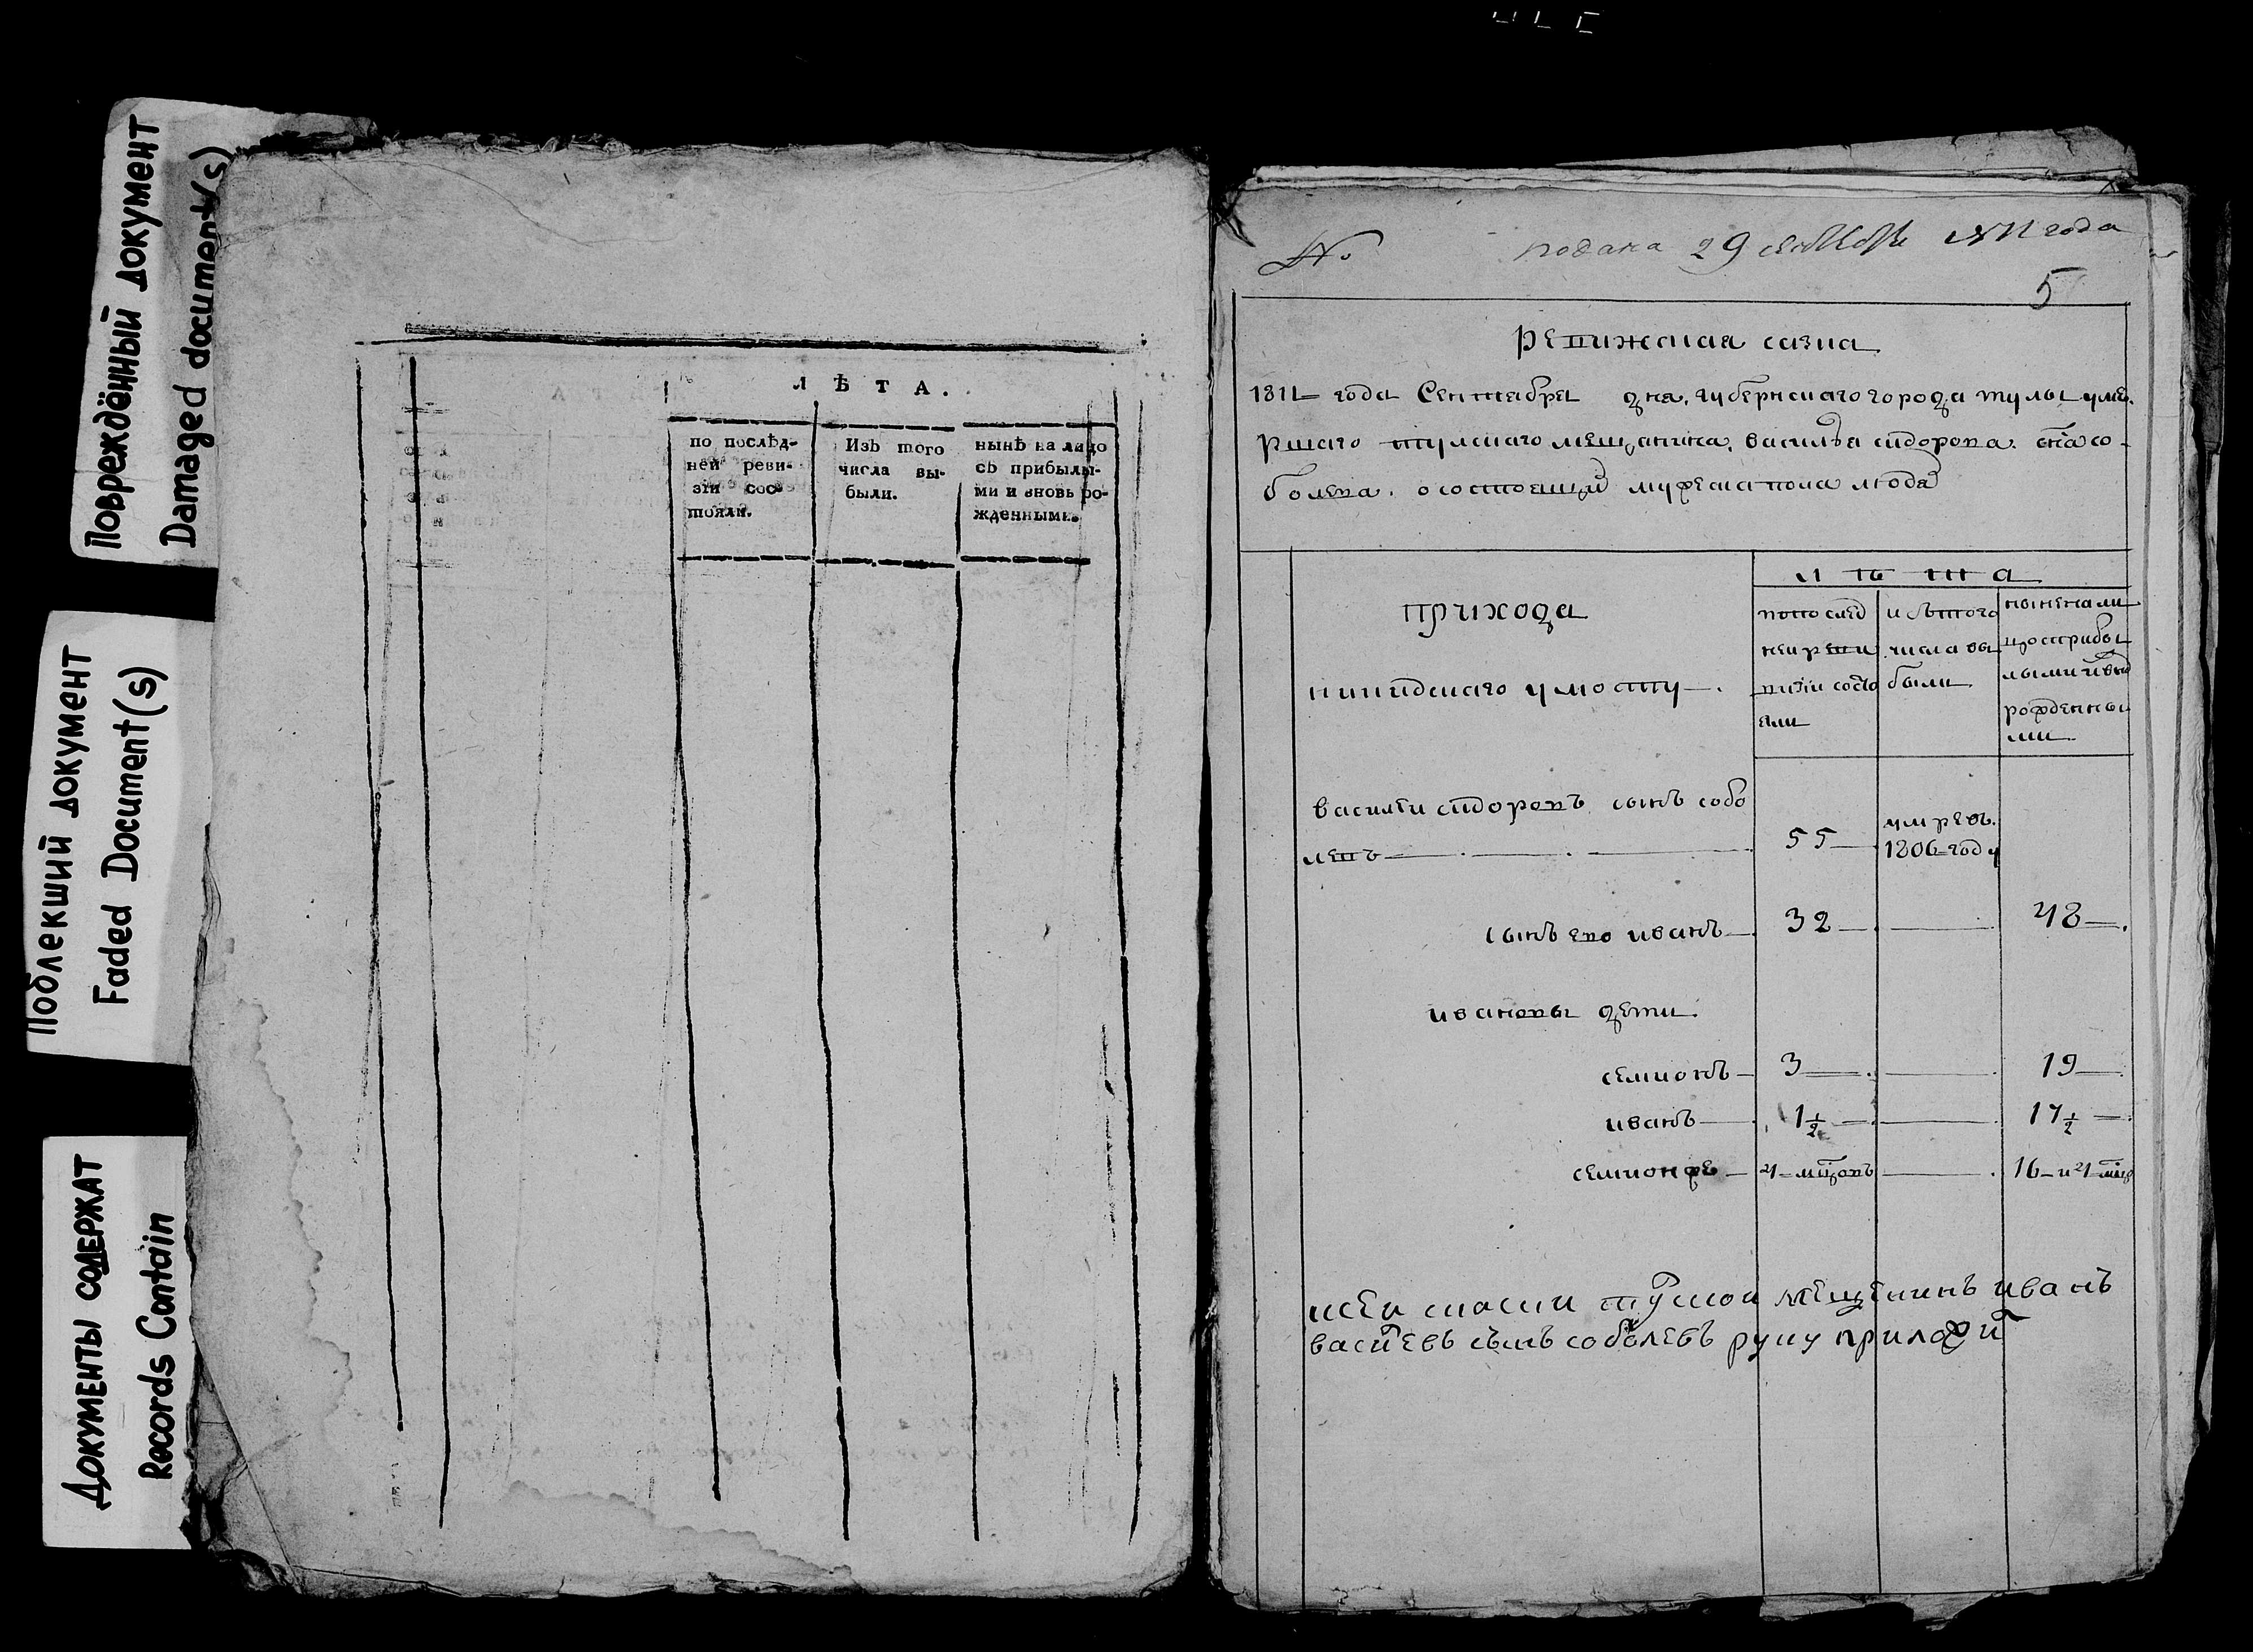 Повреждённый документ
Damaged document(s)
Поблекший документ
Faded Document(s)
Документы содержат
Records Contain
ЛѢТА.
по послѣд-
ней реви-
зіи сос-
тояли.
Изъ того
числа вы-
были.
нынѣ на лицо
съ прибылы-
ми и вновь ро-
жденными.
№ подана 29 сентебря 1811 года
5
ревижская сазка
1811 года Сентабря дня, губернскаго города тулы уме.
ршаго тулскаго мещанина, василья сидорова. сна со-
болева. о состоящих мужеска пола людех
прихода
никитскаго у мосту
лѣта
по послед
ней ре
визии состо
яли
изъ того
числа вы
были
ныне на ли
цо с прибы
лыми и внов
рожденны
ми
василеи сидоровъ сынъ собо
левъ
55
умре въ.
1806 году
сынъ ево иванъ
32
48
ивановы дети
семионъ 3 19
иванъ 1½ 17½
семион же 4 мцовъ 16 и 4 мца
к сеи скаски тулскои мещенинъ иванъ
васильевъ сынъ соболевъ руку приложил